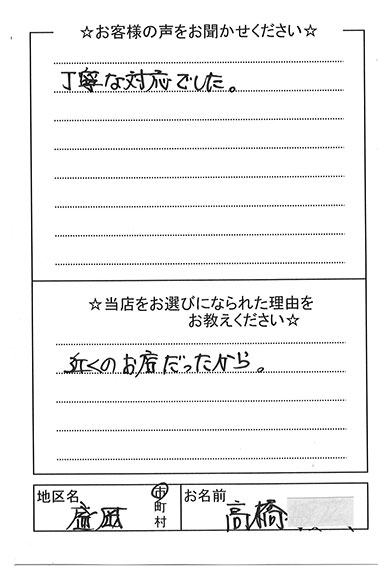 ☆お客様の声をお聞かせください☆
丁寧な対応でした。
☆当店をお選びになられた理由を
お教えください☆
近くのお店だったから。
地区名
盛岡
市
町
村
お名前
高橋